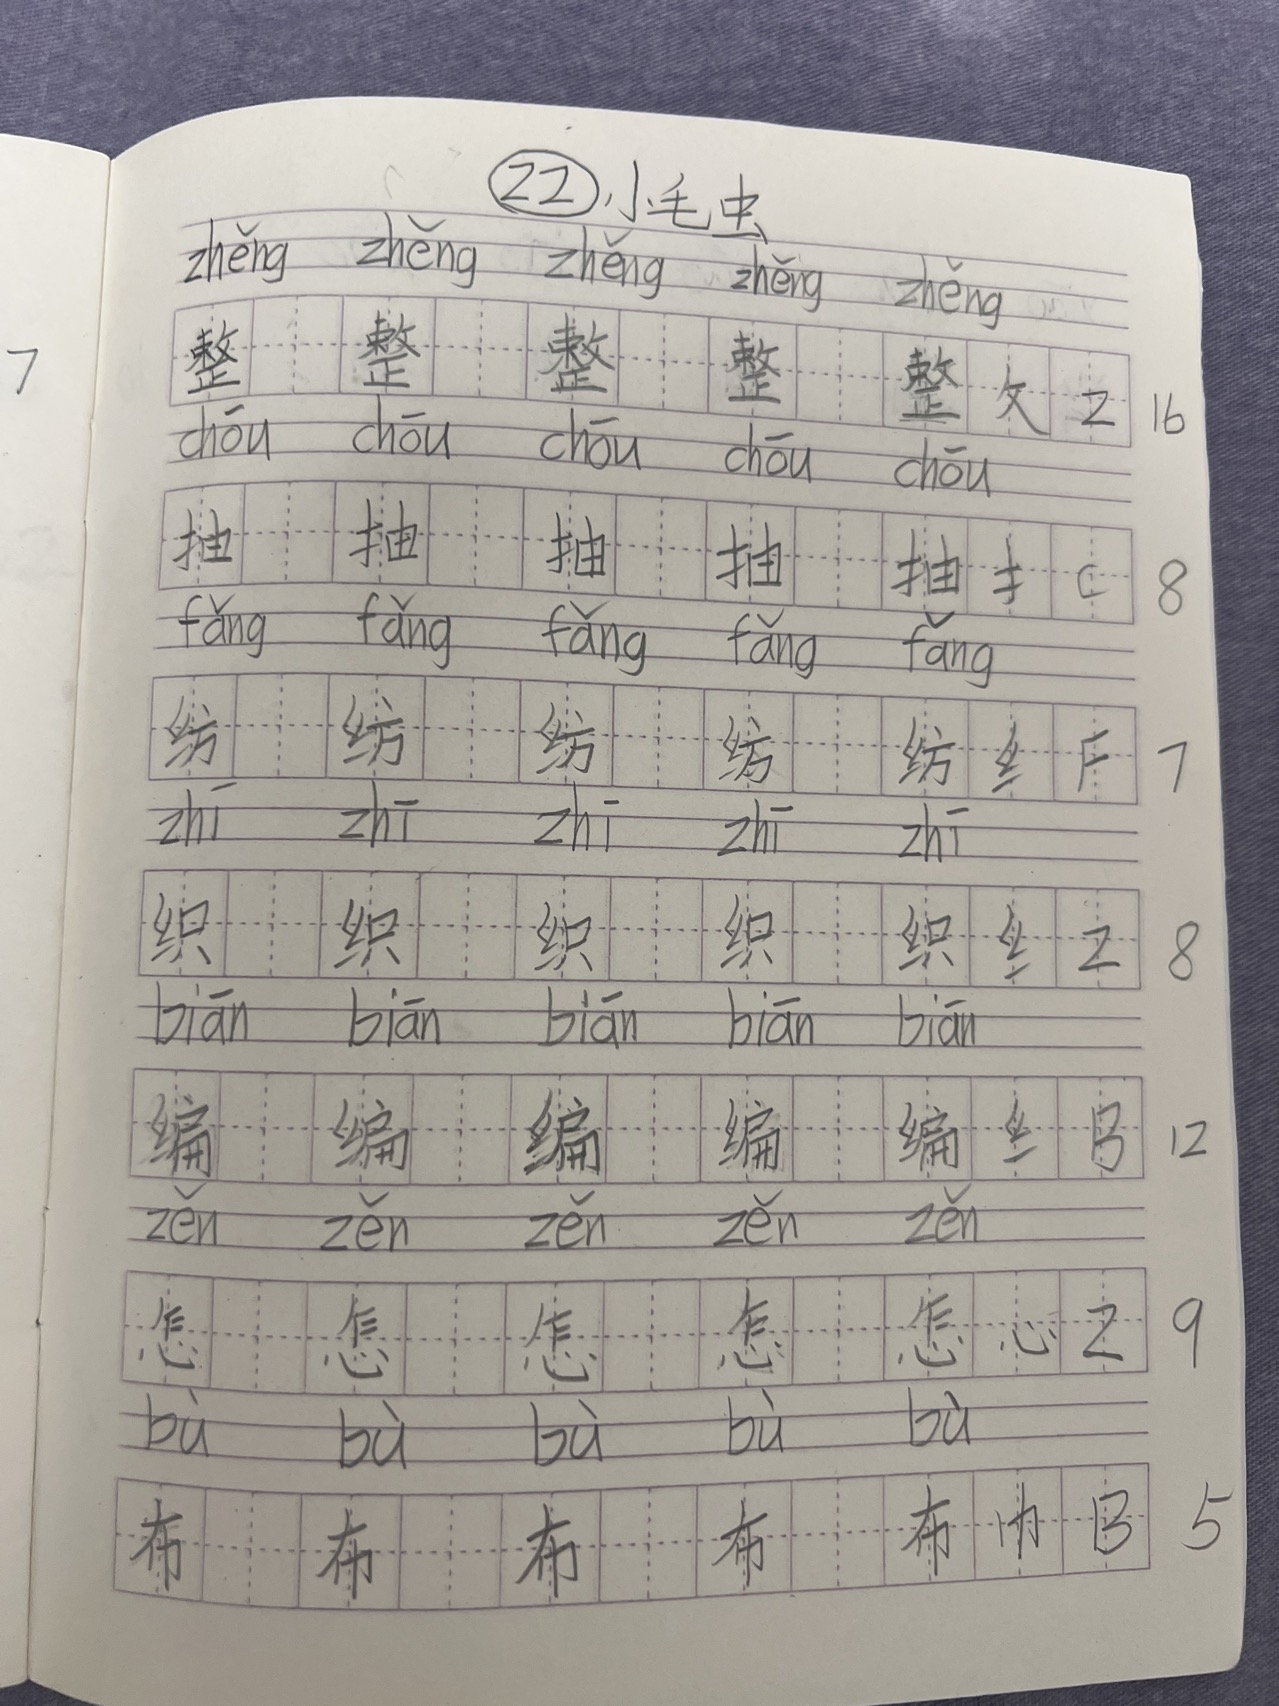 22 小毛虫
zhěng zhěng zhěng zhěng zhěng
7
整 整 整 整 整 攵 Z 16
chōu chōu chōu chōu chōu
抽 抽 抽 抽 抽 扌 C 8
fǎng fǎng fǎng fǎng fǎng
纺 纺 纺 纺 纺 纟 F 7
zhī zhī zhī zhī zhī
织 织 织 织 织 纟 Z 8
biān biān biān biān biān
编 编 编 编 编 纟 B 12
zěn zěn zěn zěn zěn
怎 怎 怎 怎 怎 心 Z 9
bù bù bù bù bù
布 布 布 布 布 巾 B 5